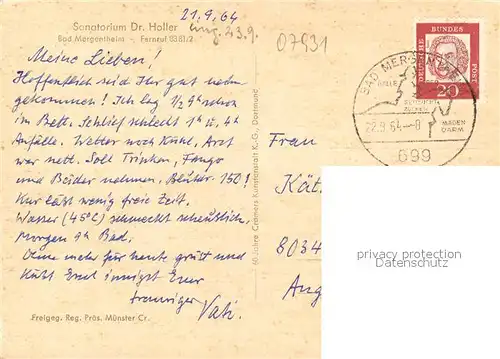 21.9.64
Sanatorium Dr. Holler
Bad Mergentheim – Fernruf 8381/2
07931
Meine Lieben!
Hoffentlich seid Ihr gut heim
gekommen! Ich lag 1/2 9h schon
im Bett. Schlief schlecht 1h u. 4h
Anfälle. Wetter noch kühl, Arzt
war nett. Soll Trinken, Fango
und Bäder nehmen. Blutdr. 150!
Kur läßt wenig freie Zeit.
Wasser (45°C) schmeckt scheußlich.
Morgen Bad.
Ohne mehr für heute grüßt und
küßt Euch innigst Euer
Vati.
Freigeg. Reg. Präs. Münster Cr.
60 Jahre Cramers Kunstanstalt K.-G., Dortmund
DEUTSCHE
BUNDES
POST
20
BAD MERGENTHEIM
GALLE
ZUCKER
MAGEN
DARM
22.9.64–8
699
Frau
Kät
8034
Ang
privacy protection
Datenschutz